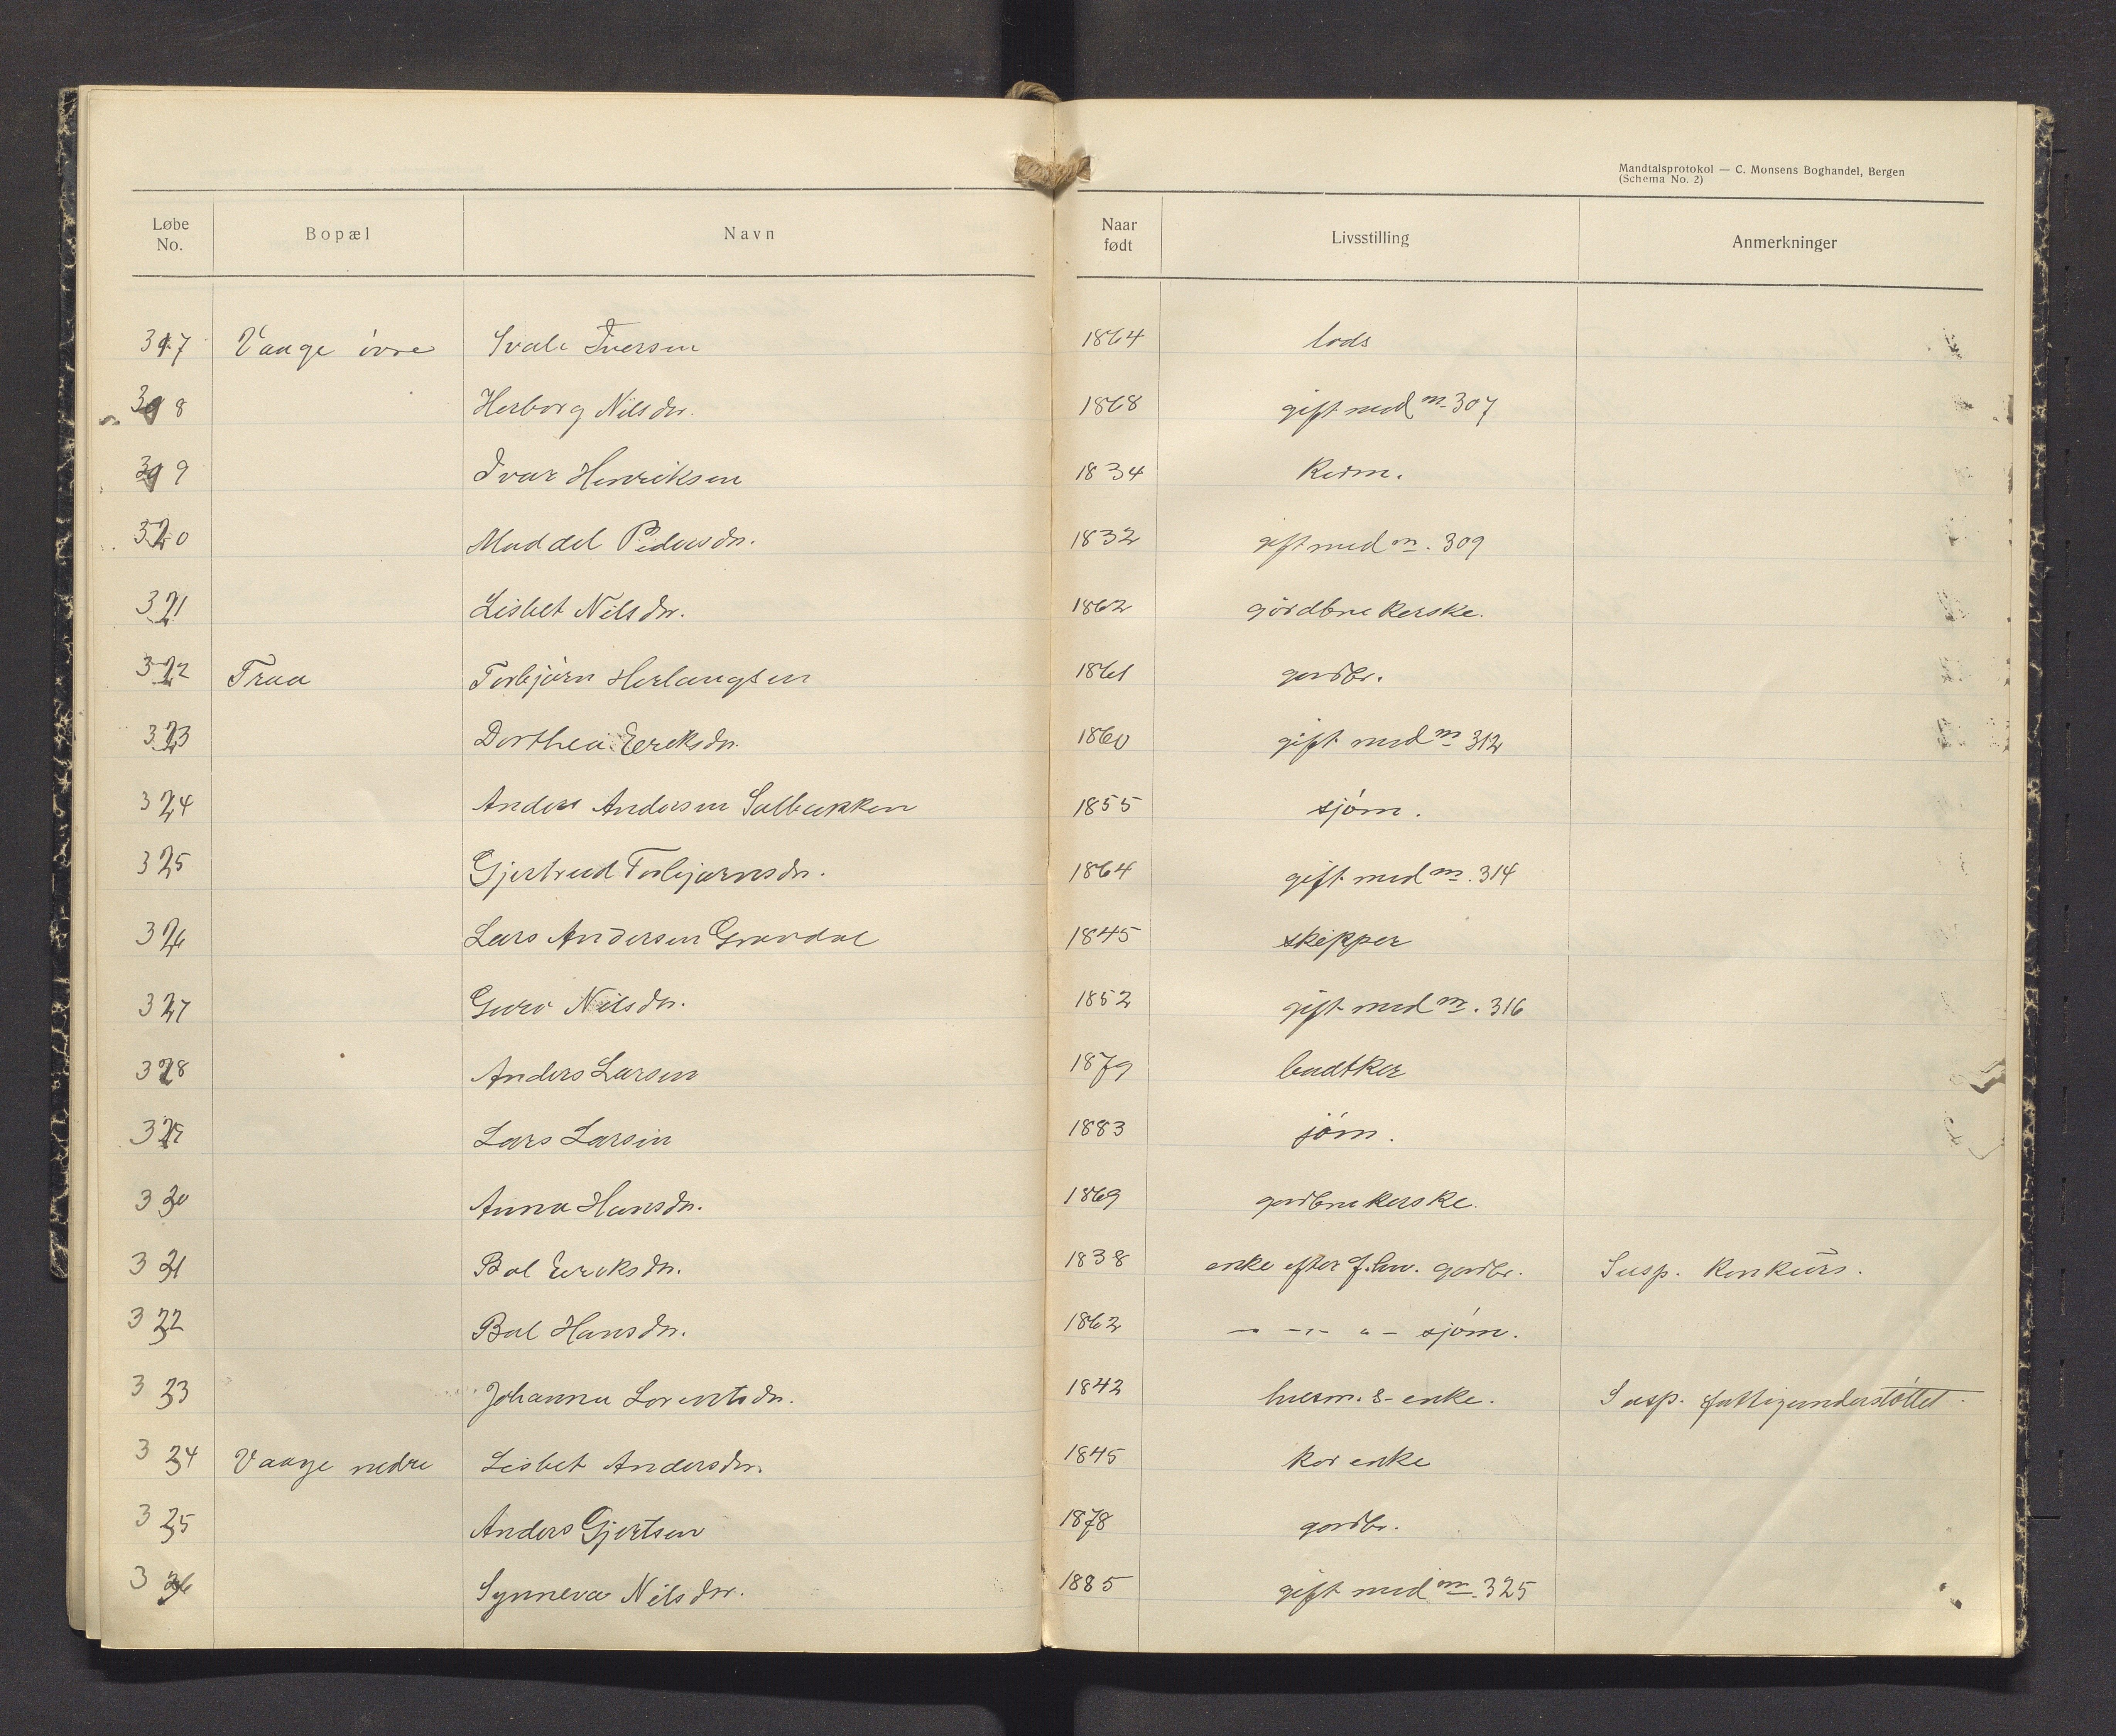 Mandtalsprotokol — C. Monsens Boghandel, Bergen
(Schema No. 2)
Løbe No. Bopæl Navn Naar født Livsstilling Anmerkninger
317 Vaage övre Ivale Iversen 1864 lods
318 Herborg Nilsdr. 1868 gift med m. 307
319 Ivar Henriksen 1834 Kaarm.
320 Maddel Pedersdr. 1832 gift med m. 309
321 Lisbet Nilsdr. 1862 gårdbrukerske.
322 Traa Torbjörn Herlaugsen 1861 gardbr.
323 Dorthea Eriksdr. 1860 gift med m 312
324 Anders Andersen Solbakken 1855 sjöm.
325 Gjertrud Torbjørnsdr. 1864 gift med m. 314
326 Lars Andersen Gravdal 1845 skipper
327 Guro Nilsdr. 1852 gift med m. 316
328 Anders Larsen 1879 bødtker
329 Lars Larsen 1883 jöm.
330 Anna Hansdr. 1869 gardbrukerske.
331 Bol Eriksdr. 1838 enke efter f. hv. gardbr. Susp. Konkurs.
332 Bol Hansdr. 1862 — -"- " - sjöm.
333 Johanna Lorentsdr. 1842 husm. s- enke. Susp. fattigunderstöttet.
334 Vaage nedre Lisbet Andersdr. 1845 kår enke
335 Anders Gjertsen 1878 gardbr.
336 Synneva Nilsdr. 1885 gift med m. 325